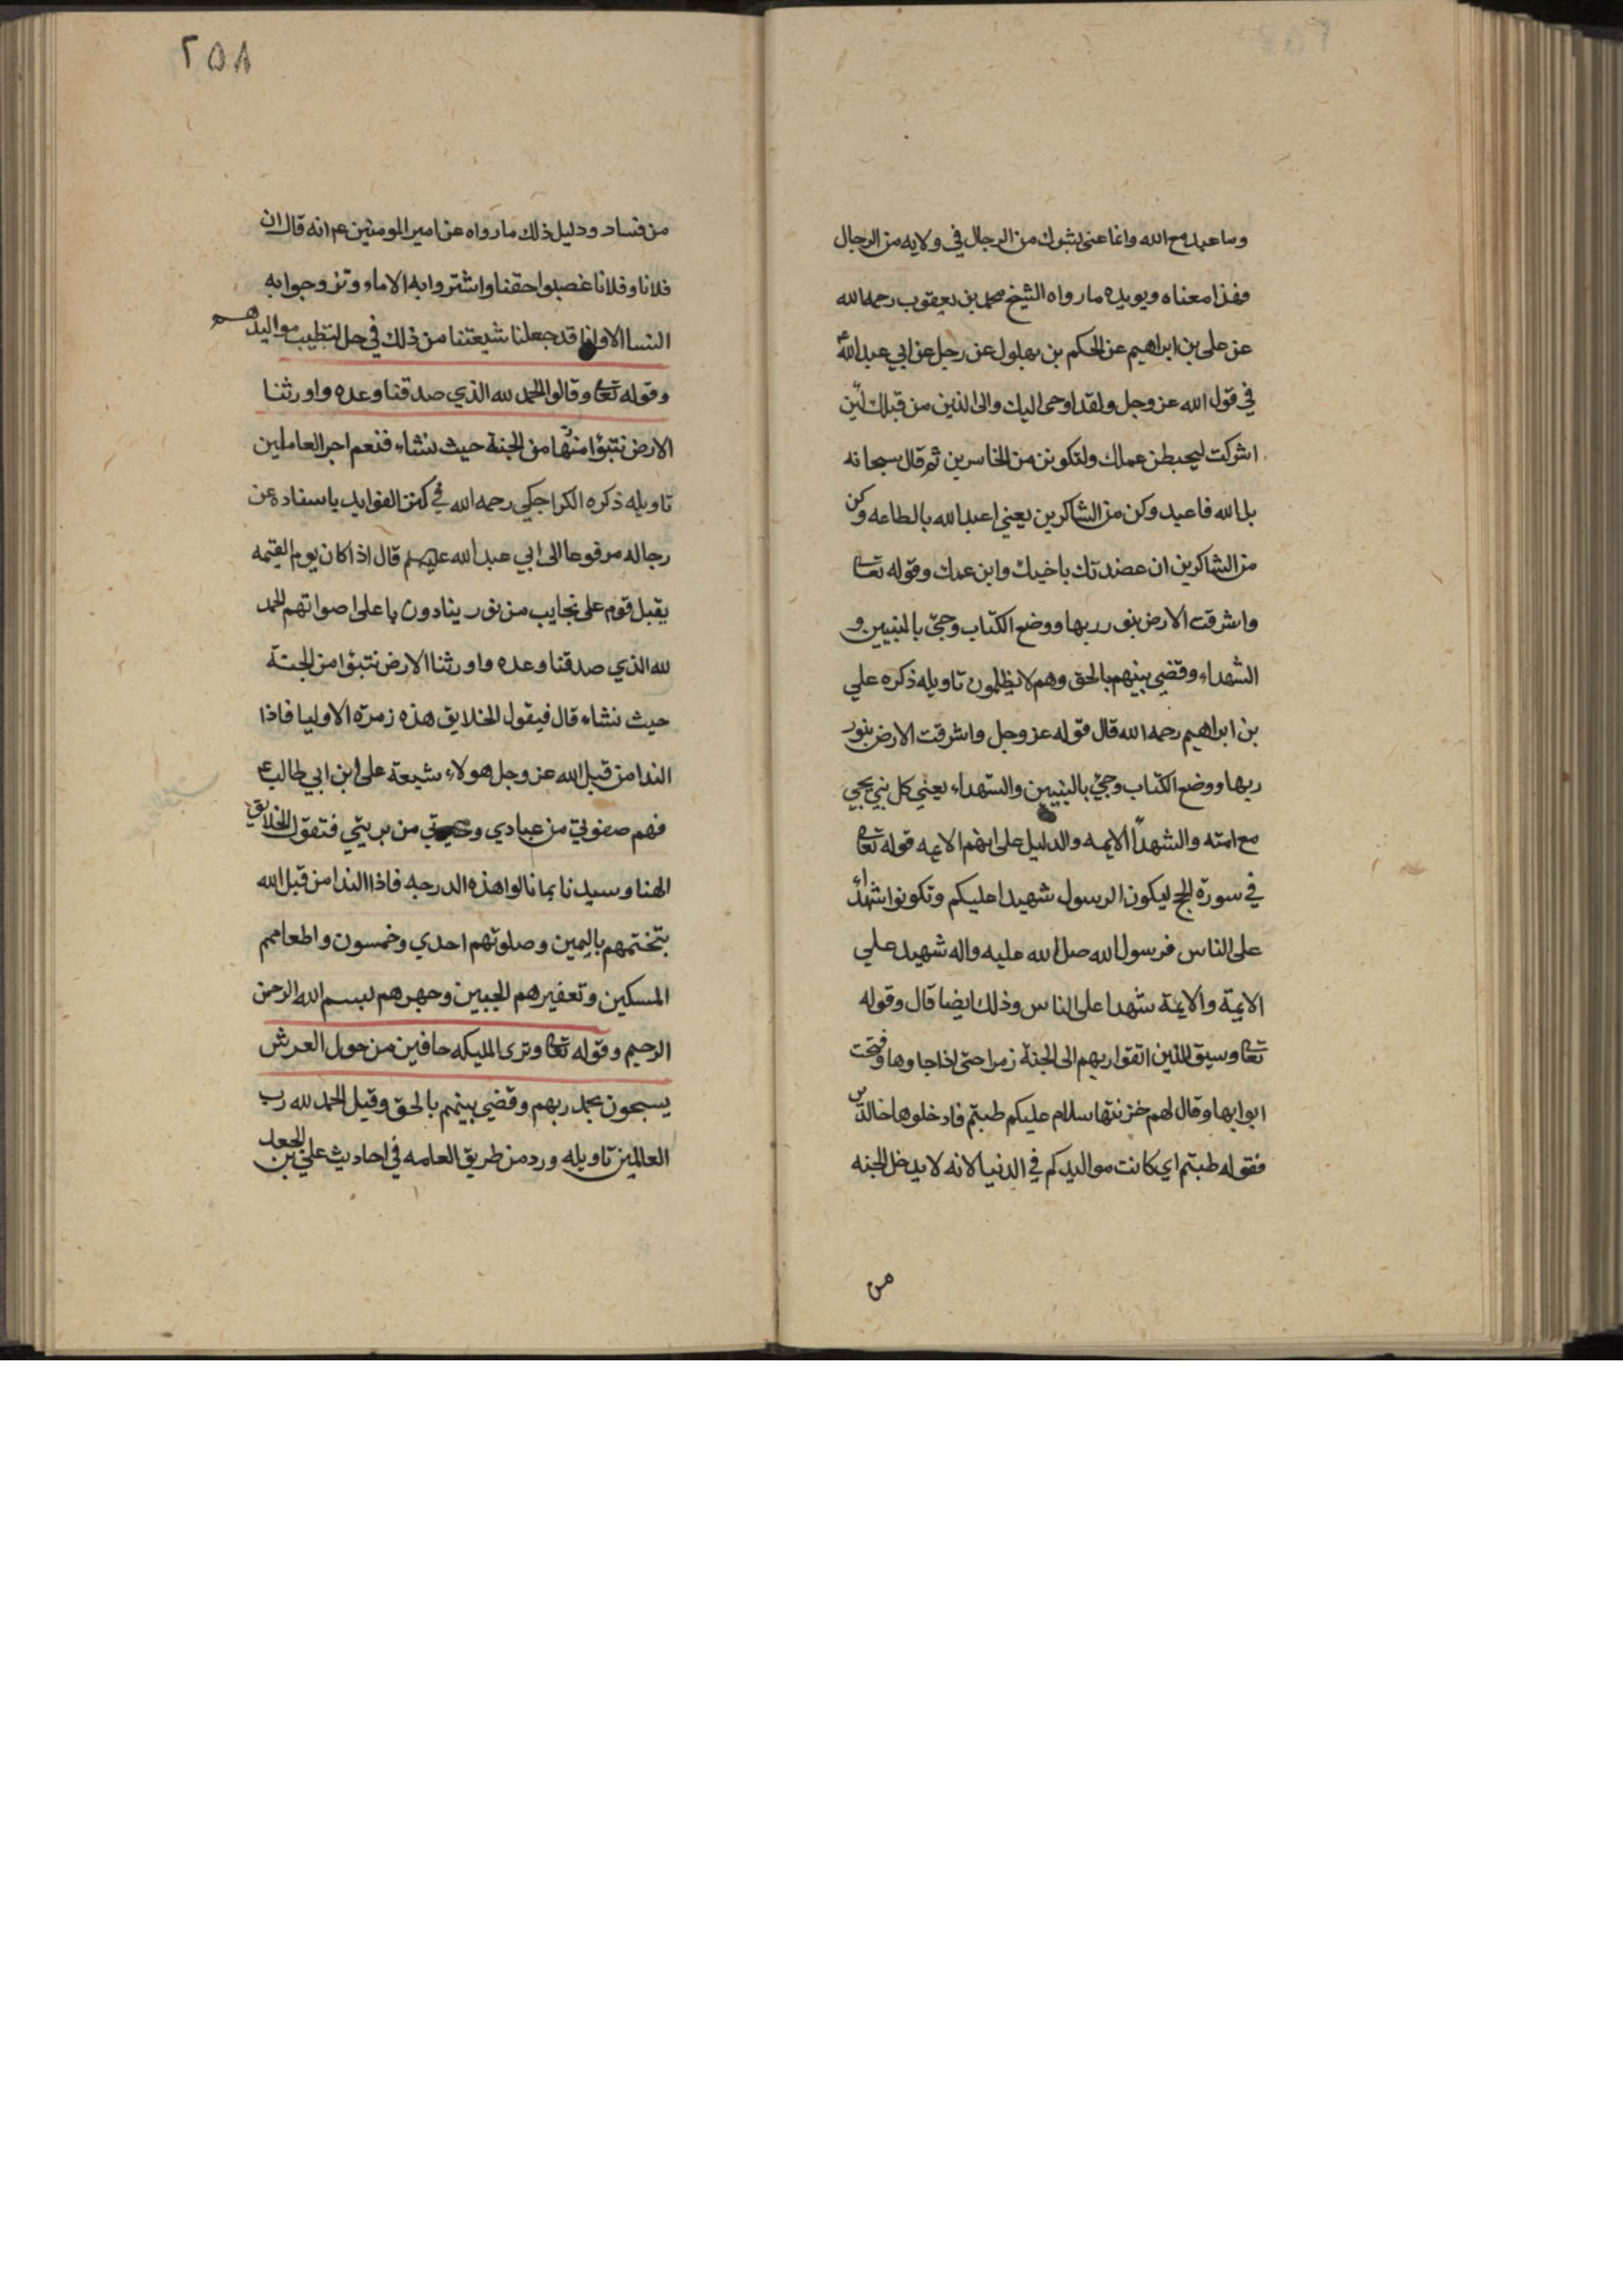 وما عبد مع الله وانما عنى بشرك من الرجال في ولايه من الرجال
فهذا معناه ويويده ما رواه الشيخ محمد بن يعقوب رحمه الله
عن على بن ابراهيم عن الحكم بن بهلول عن رجل عن ابي عبد الله ع
في قول الله عز وجل ولقد اوحى اليك والى الذين من قبلك لئن
اشركت ليحبطن عملك ولتكونن من الخاسرين ثم قال سبحانه
بل الله فاعبد وكن من الشاكرين يعني اعبد الله بالطاعه وكن
من الشاكرين ان عضدتك باخيك وابن عمك وقوله تعا
واشرقت الارض بنور ربها ووضع الكتاب وجئ بالنبيين و
الشهداء وقضي بينهم بالحق وهم لا يظلمون تاويله ذكره علي
بن ابراهيم رحمه الله قال قوله عز وجل واشرقت الارض بنور
ربها ووضع الكتاب وجئ بالنبيين والشهداء يعني كل نبي يجي
مع امته والشهدآ الايمه والدليل على انهم الايمه قوله تعا
في سورة الحج ليكون الرسول شهيدا عليكم وتكونوا شهداء
على الناس فرسول الله صلى الله عليه واله شهيد علي
الايمة والايمة شهدا على الناس وذلك ايضا قال وقوله
تعا وسيق الذين اتقوا ربهم الى الجنة زمرا حتى اذا جاوها وفتحت
ابوابها وقال لهم خزنتها سلام عليكم طبتم فادخلوها خالدين
فقوله طبتم اي كانت مواليدكم في الدنيا لانه لا يدخل الجنه
من
٢٥٨
من فساد ودليل ذلك ما رواه عن امير المومنين ع انه قال ان
فلانا وفلانا غصبوا حقنا واشتروا به الاماء وتزوجوا به
النسا الا وانا قد جعلنا شيعتنا من ذلك في حل لتطيب مواليدهم
وقوله تعا وقالوا الحمد لله الذي صدقنا وعده واورثنا
الارض نتبؤا منها من الجنة حيث نشاء فنعم اجر العاملين
تاويله ذكره الكراجكي رحمه الله في كنز الفوايد باسناده عن
رجاله مرفوعا الى ابي عبد الله عليهم قال اذا كان يوم القيمه
يقبل قوم على نجايب من نور ينادون باعلى اصواتهم الحمد
لله الذي صدقنا وعده واورثنا الارض نتبؤا من الجنة
حيث نشاء قال فيقول الخلايق هذه زمرة الاوليا فاذا
الندا من قبل الله عز وجل هولاء شيعة على ابن ابي طالب ع
فهم صفوتي من عبادي وخيرتي من بريتي فتقول الخلايق
الهنا وسيدنا بما نالوا هذه الدرجه فاذا الندا من قبل الله
بتختمهم باليمين وصلوتهم احدي وخمسون واطعامهم
المسكين وتعفيرهم للجبين وجهرهم لبسم الله الرحمن
الرحيم وقوله تعا وترى المليكه حافين من حول العرش
يسبحون بحمد ربهم وقضي بينهم بالحق وقيل الحمد لله رب
العالمين تاويله ورد من طريق العامه في احاديث علي بن الجعد